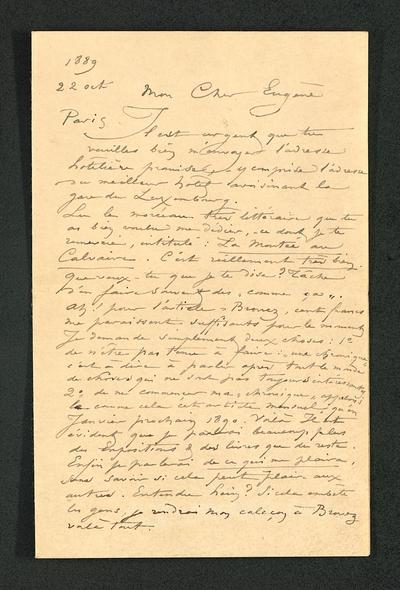 1889
22 oct
Mon Cher Eugène
Paris. Il est urgent que tu
veuilles bien m'envoyer l'adresse
hotelière promise, y comprise l'adresse
du meilleur hotel avoisinant la
gare du Luxembourg.
Lu le morceau très littéraire que tu
as bien voulu me dédier, ce dont je te
remercie, intitulé : La Montée au
Calvaire. C'est réellement très bien.
Que veux-tu que je te dise? Tâche
d'en faire souvent des, comme ça.
Ah! pour l'article Brouez, cent francs
me paraissent suffisants pour le moment
Je demande simplement deux choses : 1º
de n'être pas tenu à faire une chronique
c'est à dire à parler après tout le monde
de choses qui ne sont pas toujours intéressantes
2º de ne commencer ma, chronique, appelons
la comme cela cet article mensuel qu'en
Janvier prochain 1890. Voilà Il est
évident que je parlerai beaucoup plus
des Expositions & des livres que du reste.
Enfin je parlerai de ce qui me plaira,
sans savoir si cela peut plaire aux
autres. Entendu hein? Si cela embête
les gens, je rendrai mon caleçon à Brouez
voilà tout.